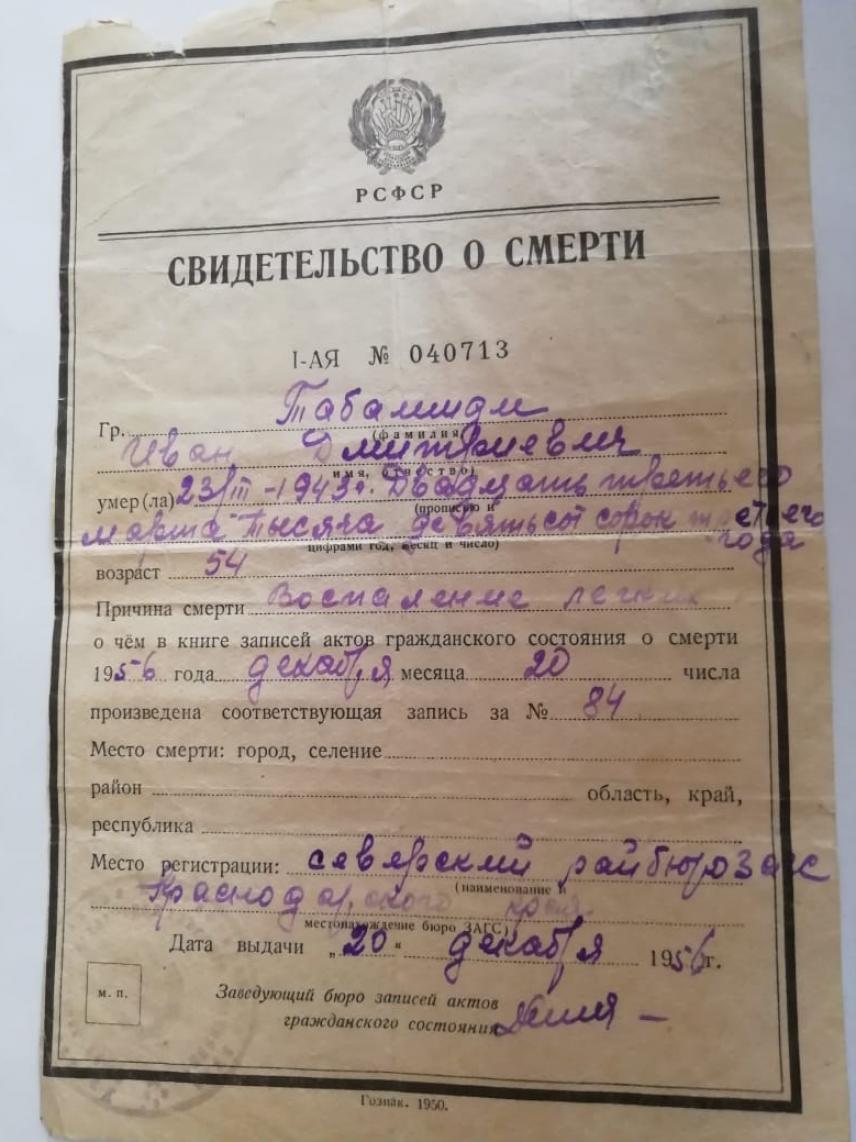 РСФСР
СВИДЕТЕЛЬСТВО О СМЕРТИ
I-АЯ № 040713
Гр.
(фамилия)
Иван Дмитриевич
имя, отчество)
умер(ла) 23/III-1943г. Двадцать третьего
(прописью и
марта тысяча девятьсот сорок третьего
цифрами год, месяц и число)
года
возраст 54
Причина смерти Воспаление легких
о чём в книге записей актов гражданского состояния о смерти
1956 года декабря месяца 20 числа
произведена соответствующая запись за № 84
Место смерти: город, селение
район область, край,
республика
Место регистрации: северский райбюро загс
(наименование и
Краснодарского края
местонахождение бюро ЗАГС)
Дата выдачи „20“ декабря 1956г.
м. п.
Заведующий бюро записей актов
гражданского состояния
Гознак. 1950.